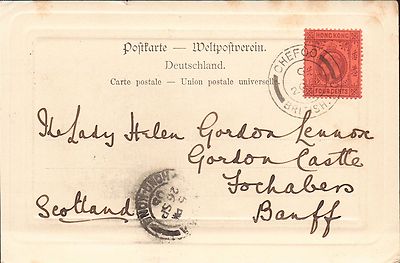 Postkarte — Weltpostverein.
Deutschland.
Carte postale — Union postale universelle
HONG KONG
FOUR CENTS
CHEFOO
BRITISH
The Lady Helen Gordon Lennox
Gordon Castle
Fochabers
Banff
Scotland
HONG KONG
5 PM
26 SP